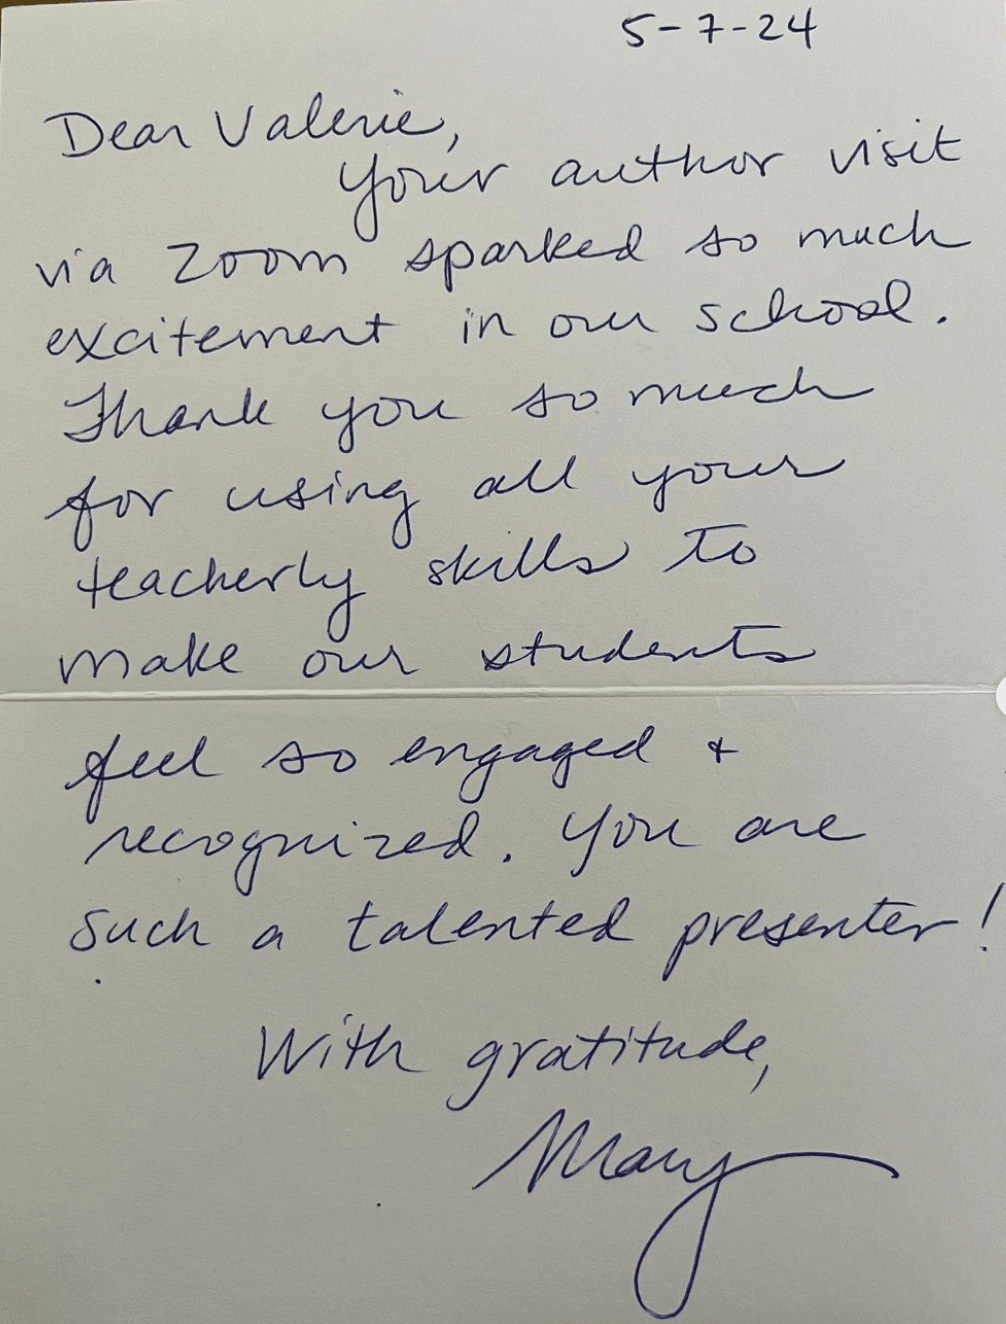 5-7-24
Dear Valerie,
Your author visit
via Zoom sparked so much
excitement in our school.
Thank you so much
for using all your
teacherly skills to
make our students
feel so engaged +
recognized. You are
such a talented presenter!
With gratitude,
Mary